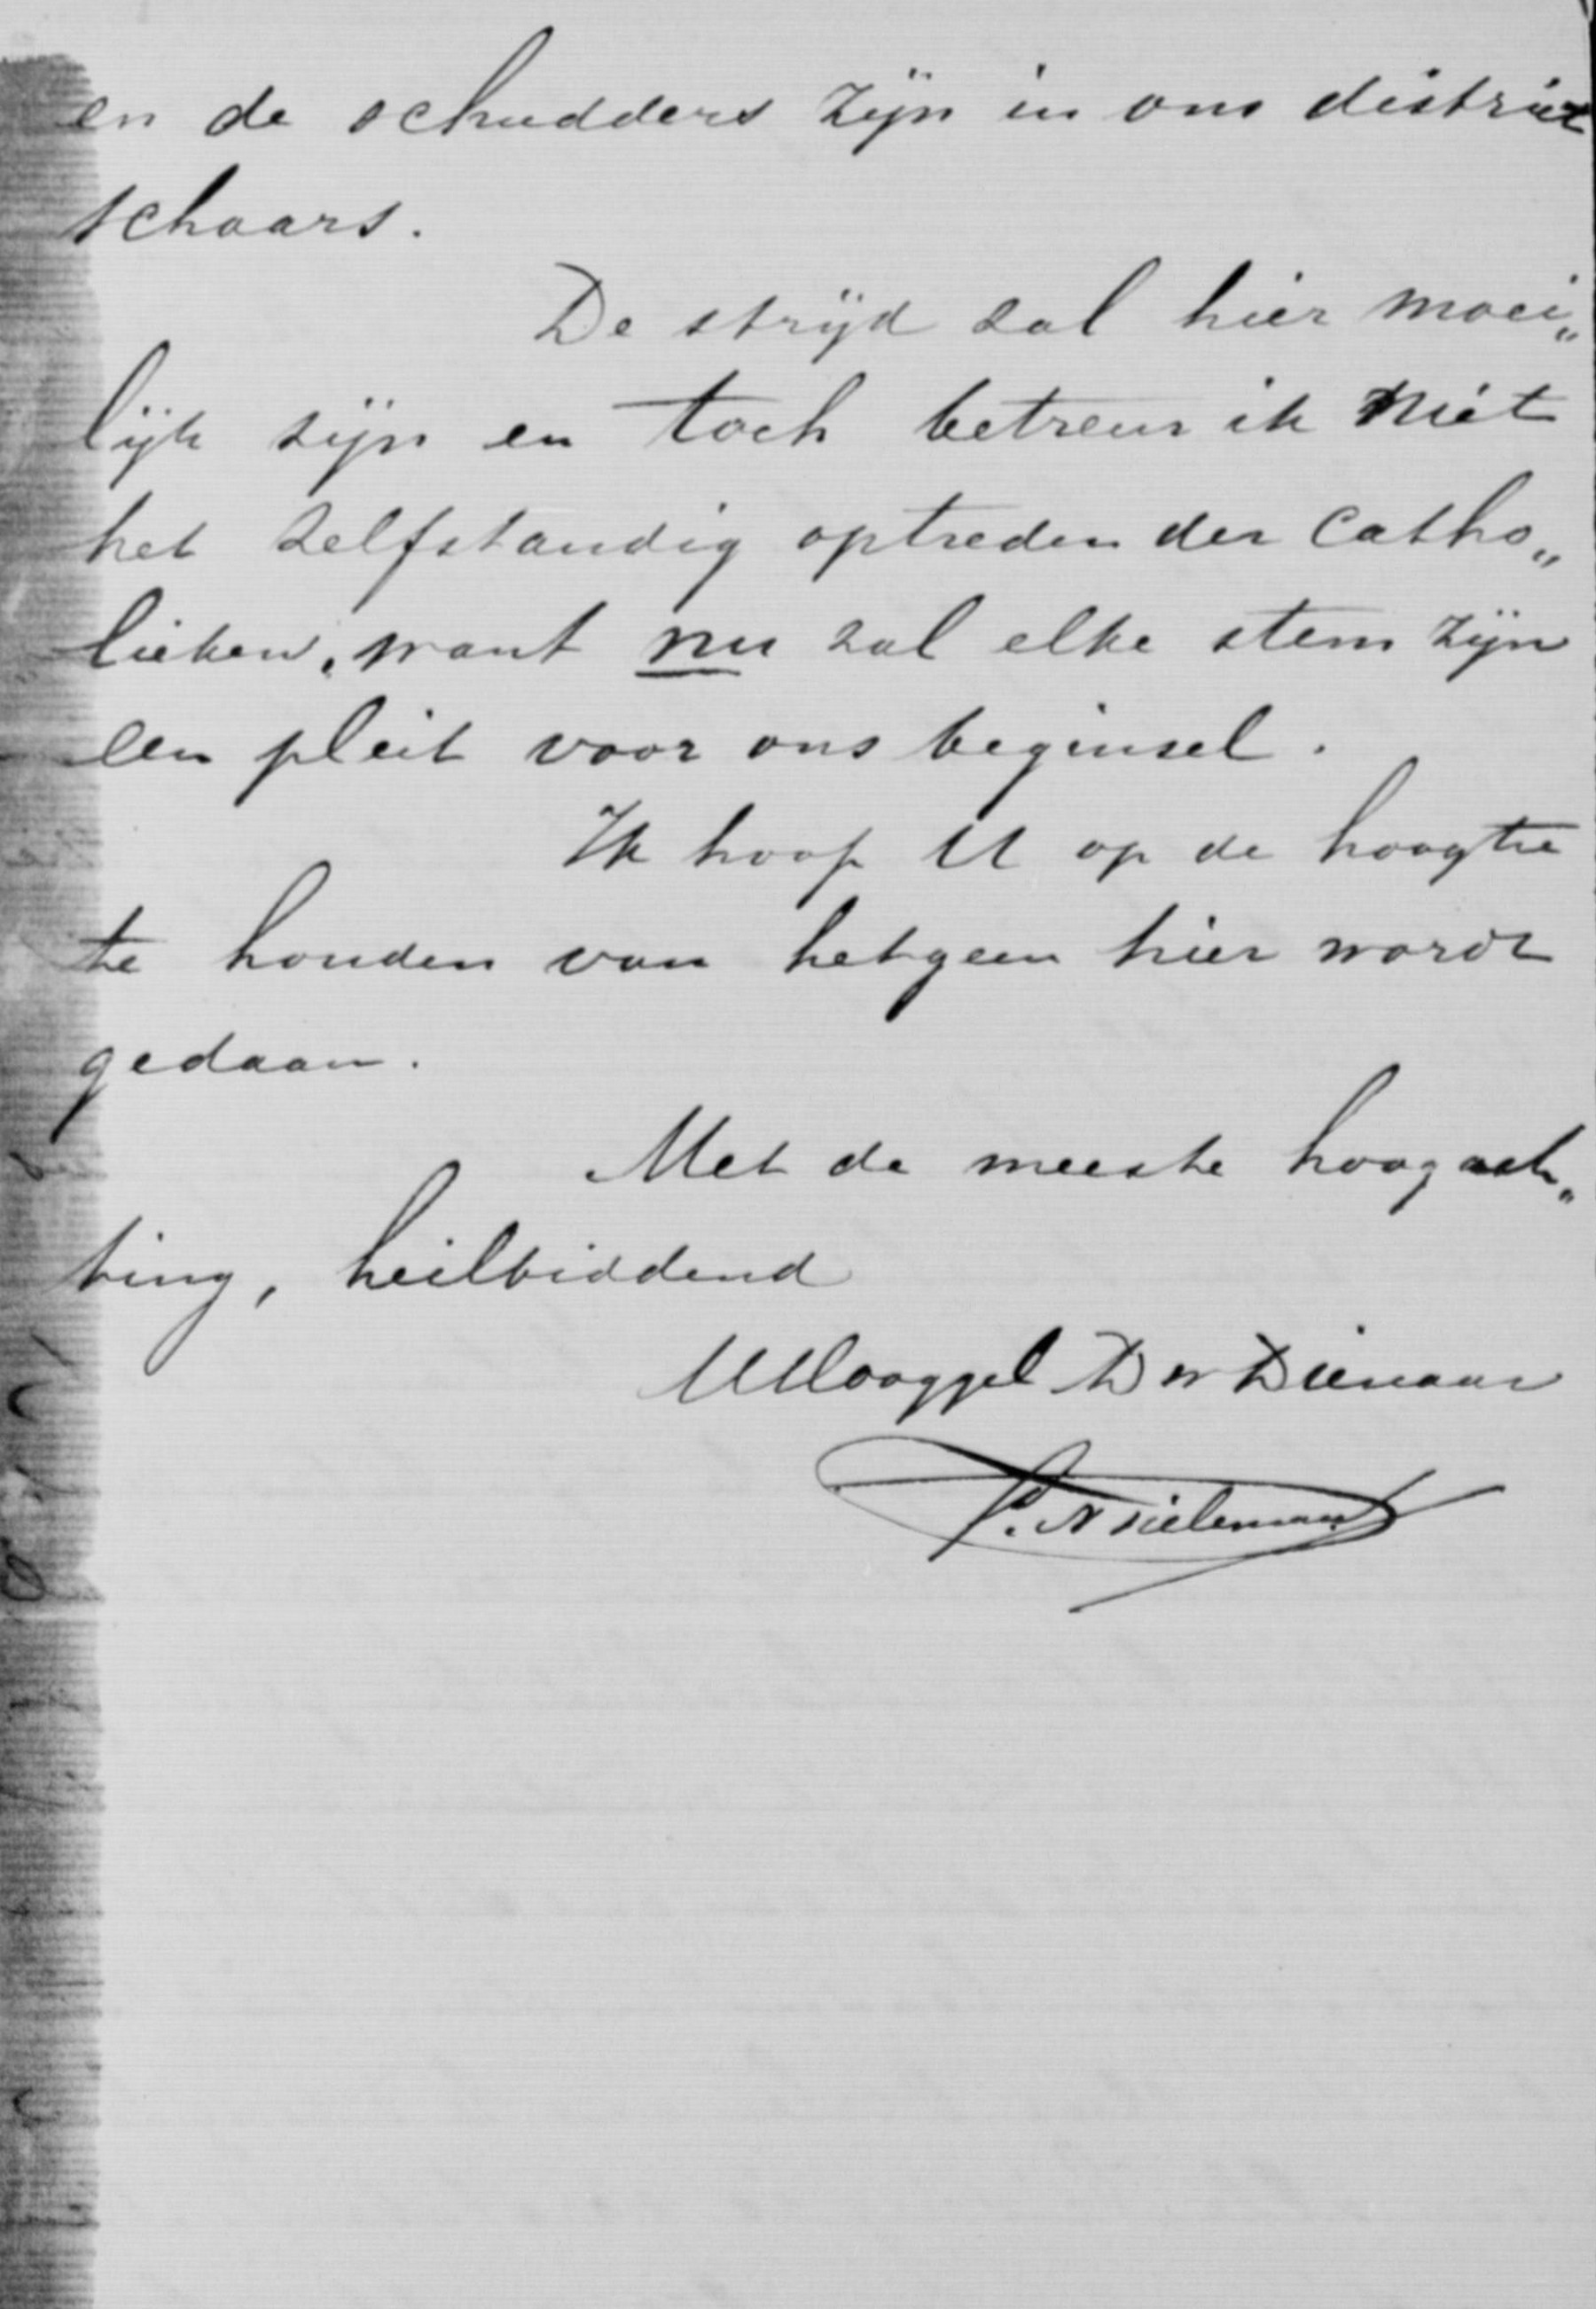 en de schudders zijn in ons district
schaars.
De strijd zal hier moei„
lijk zijn en toch betreur ik niet
het zelfstandig optreden der Catho„
lieken, want nu zal elke stem zijn
een pleit voor ons beginsel.
Ik hoop U op de hoogte
te houden van hetgeen hier wordt
gedaan.
Met de meeste hoogach„
ting, heilbiddend
UHooggel Dw Dienaar